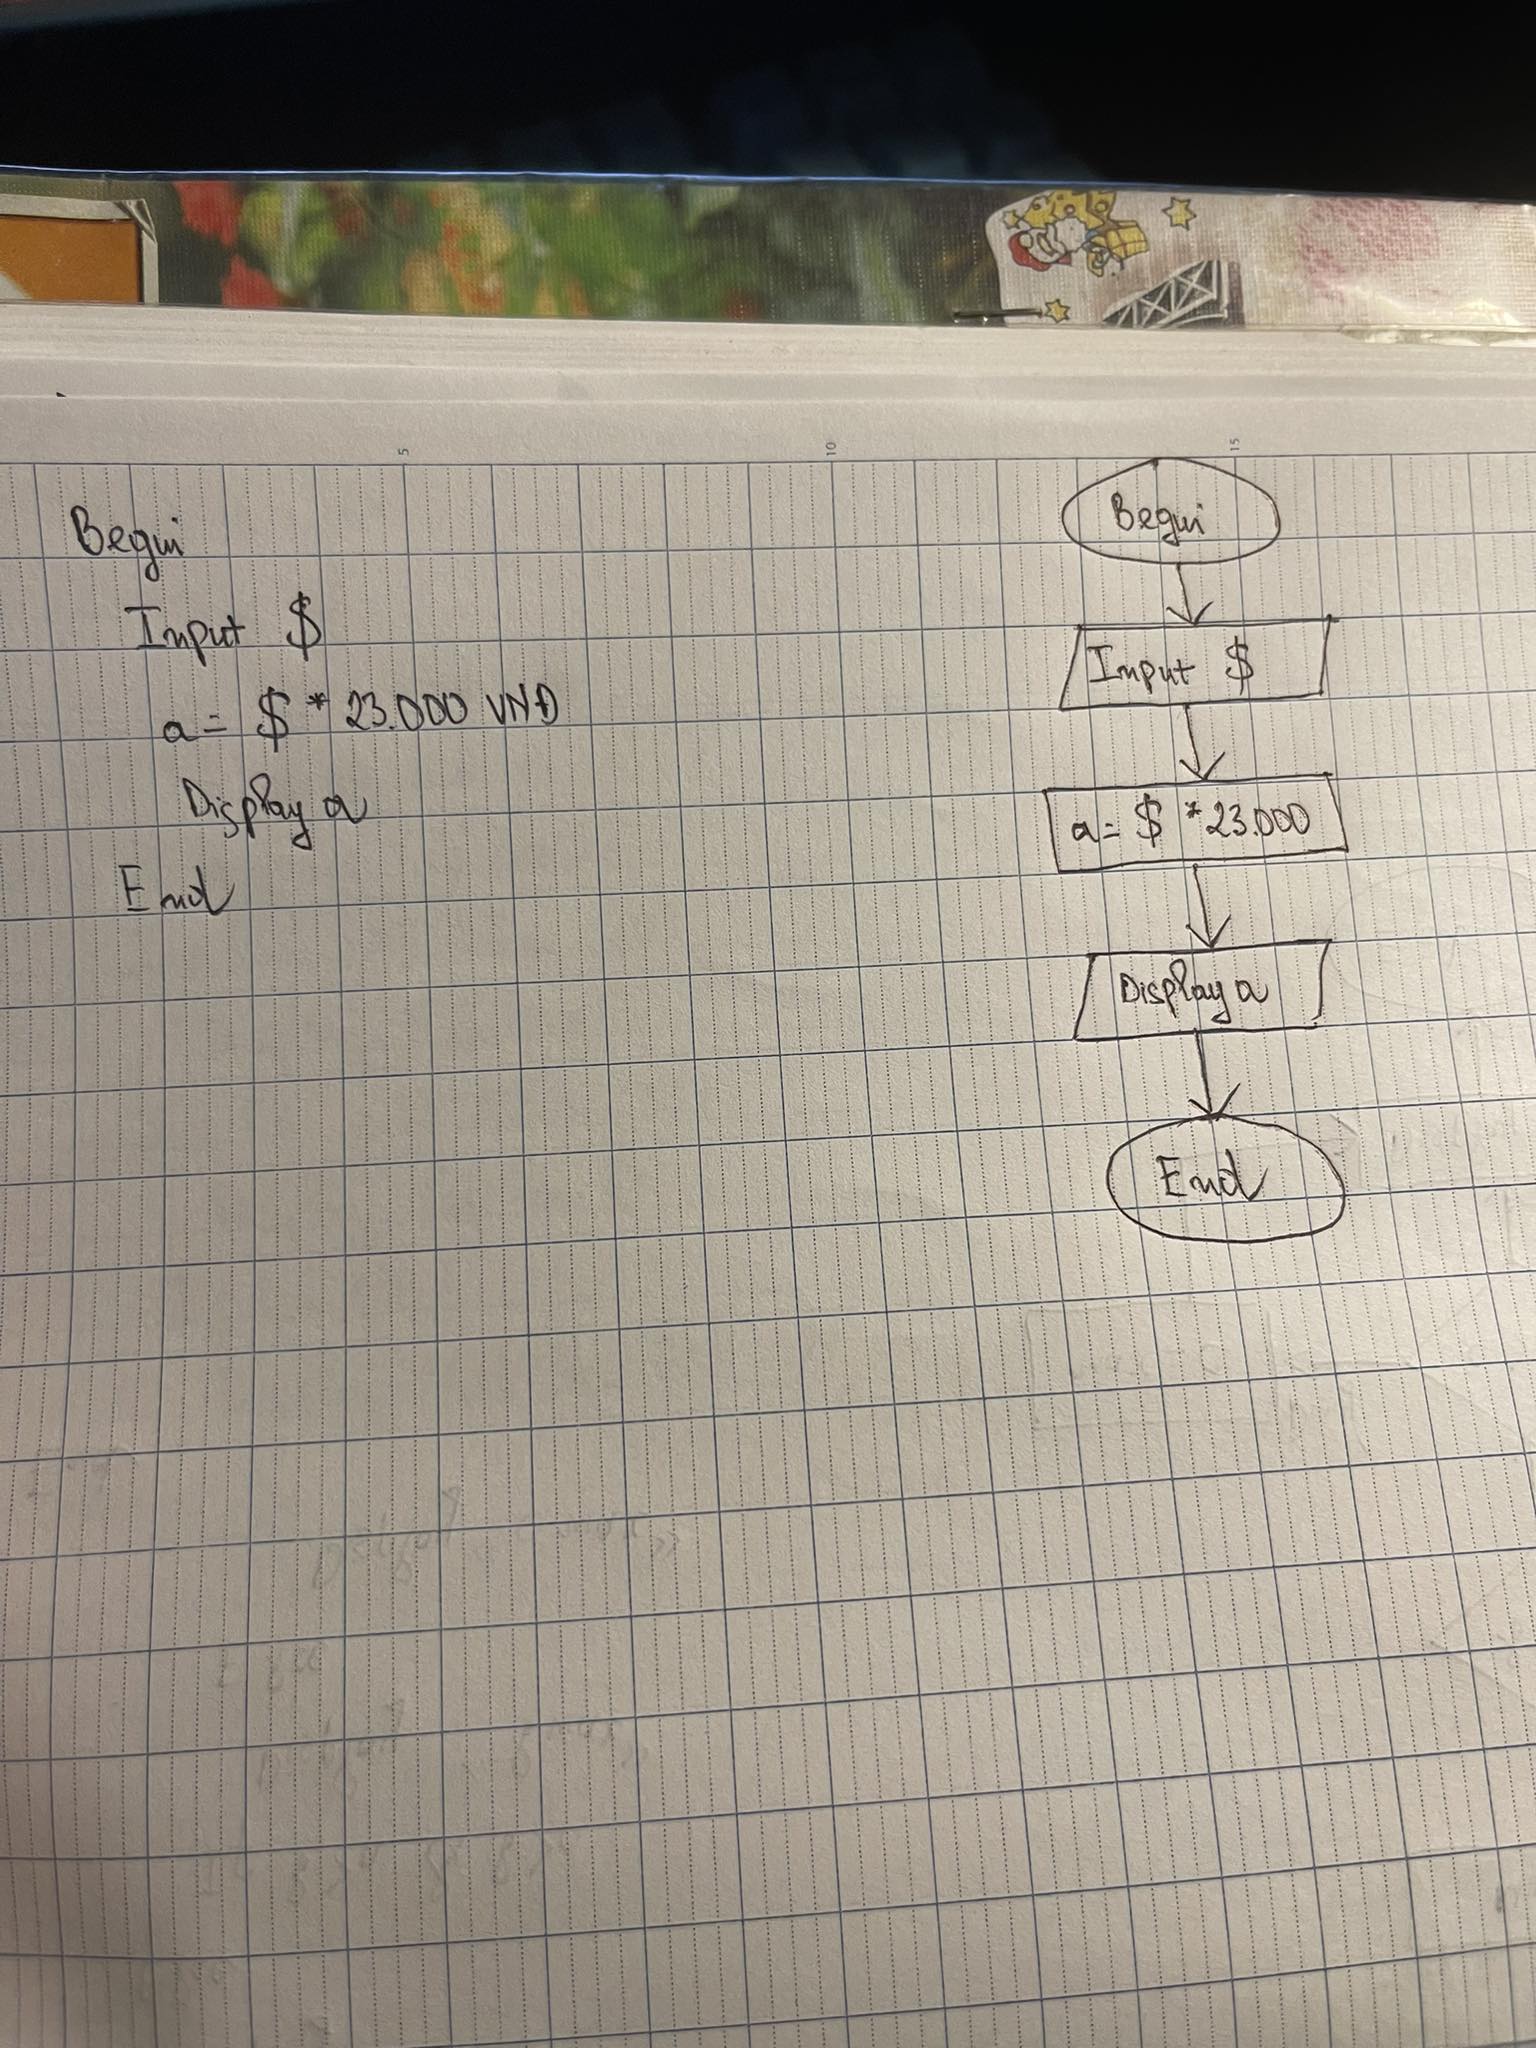 5
10
15
Begin
Input $
a = $ * 23.000 VNĐ
Display a
End
Begin
Input $
a = $ * 23.000
Display a
End